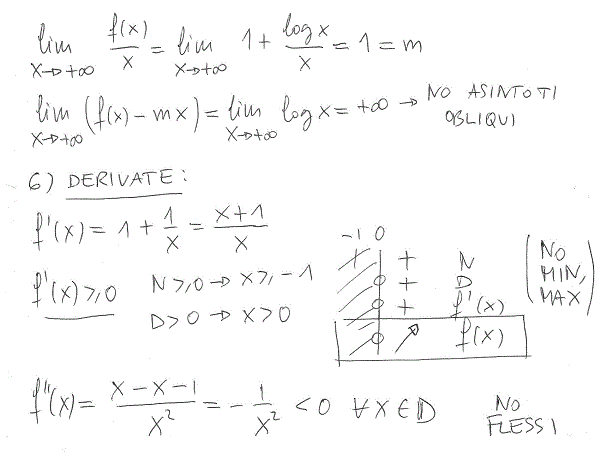 lim x→+∞ f(x)/x = lim x→+∞ 1 + log x/x = 1 = m
lim x→+∞ (f(x) - mx) = lim x→+∞ log x = +∞ → NO ASINTOTI OBLIQUI
6) DERIVATE:
f'(x) = 1 + 1/x = (x+1)/x
f'(x) ⩾ 0 N ⩾ 0 → x ⩾ -1
D > 0 → x > 0
-1 0
+ N
+ D
+ f'(x)
↗ f(x)
(NO MIN, MAX)
f''(x) = (x - x - 1)/x² = - 1/x² < 0 ∀x ∈ D NO FLESSI